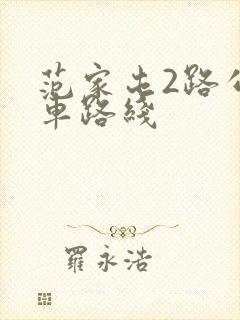 范家屯2路公
車路綫
羅永浩